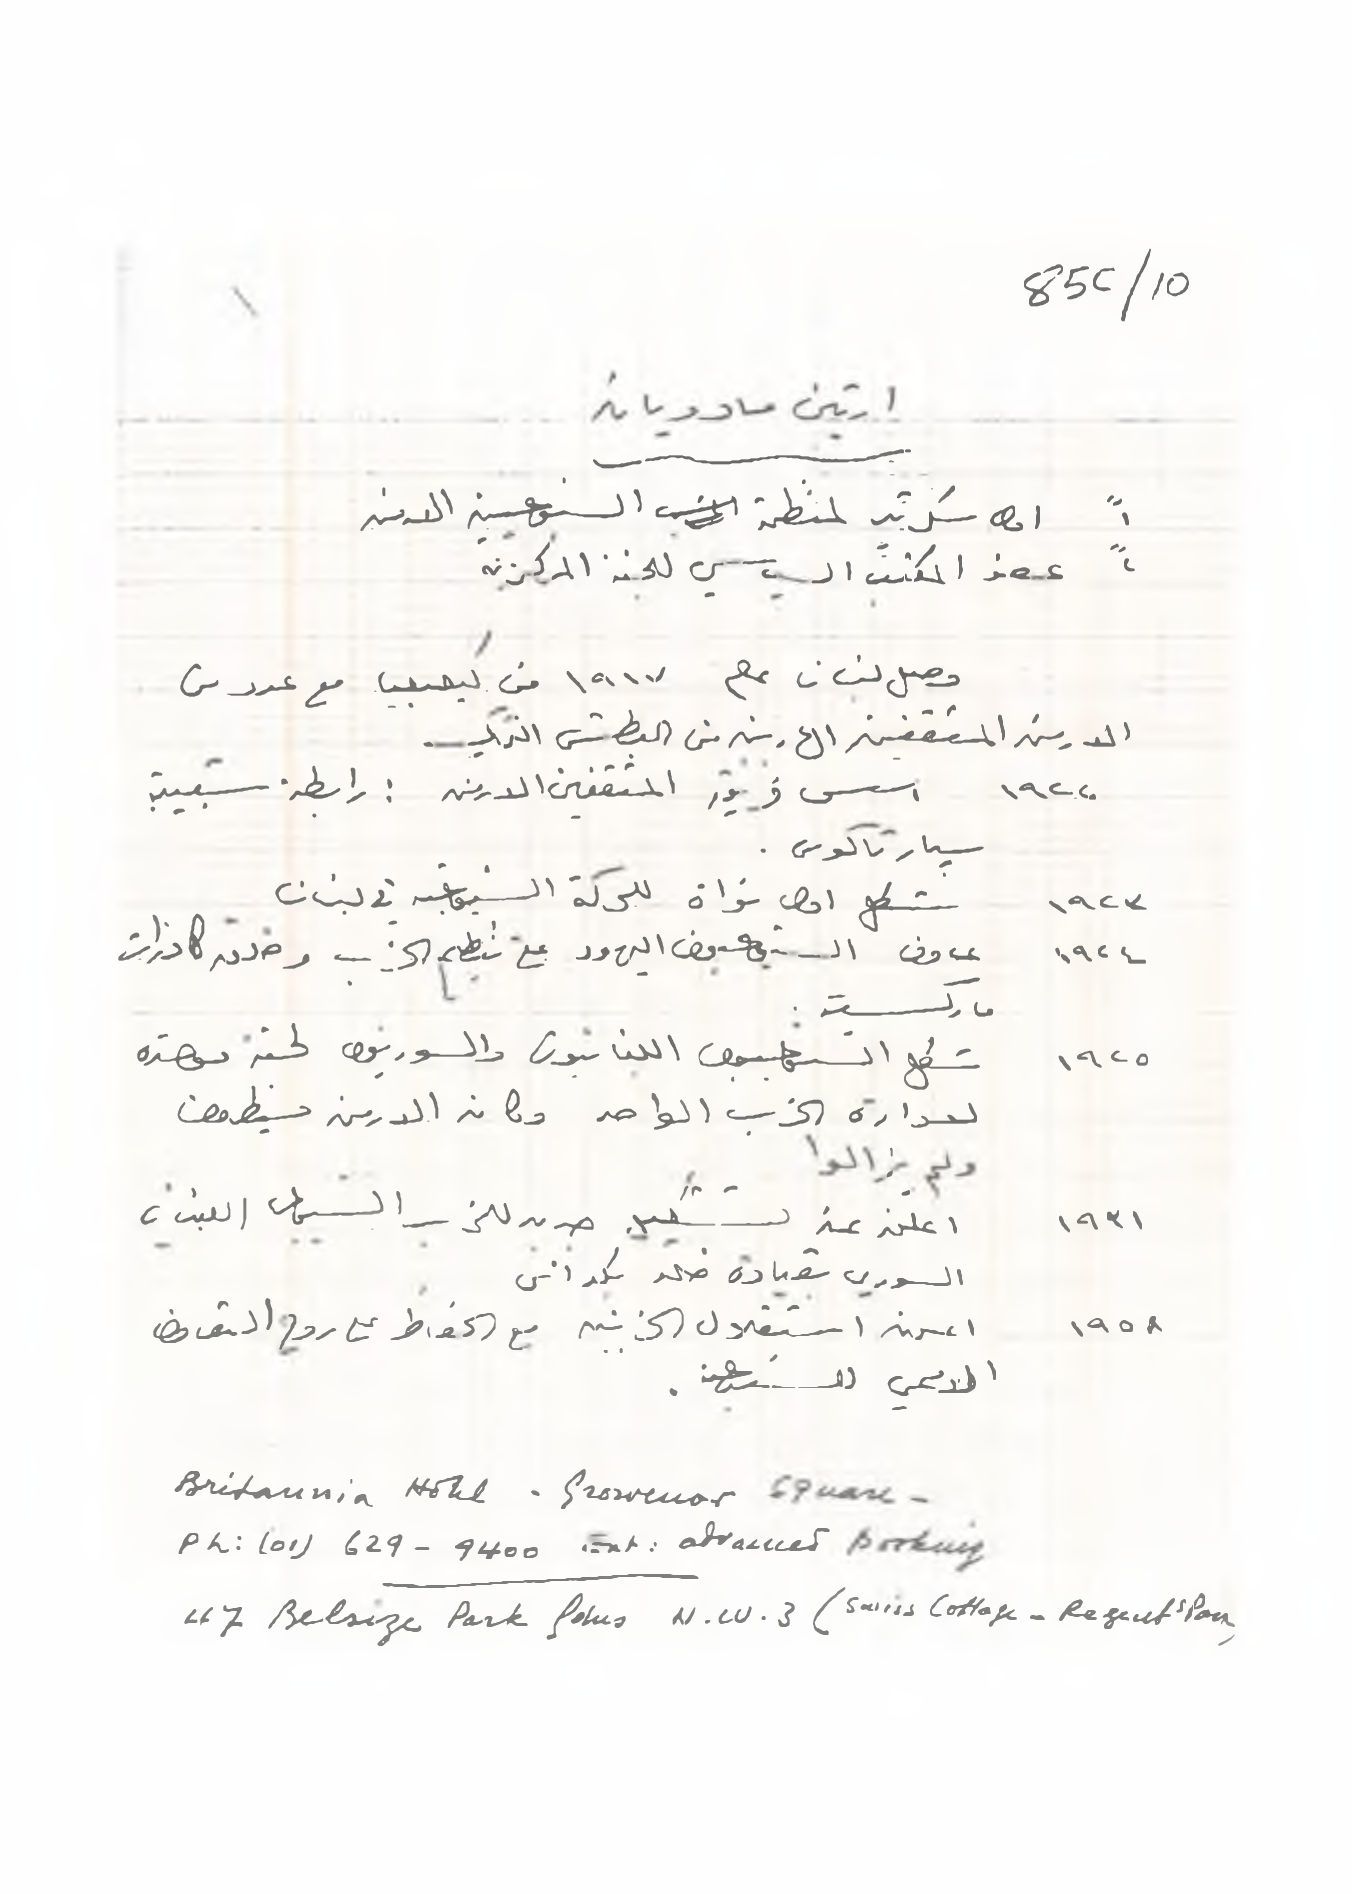 85C/10
ارتين مادويان
١ً اول سكرتير لمنظمة الشيوعيين الارمن
٢ً عضو المكتب السياسي للجنة المركزية
وصل لبنان عام ١٩١٧ من مع عدد من
الارمن المثقفين من البطش التركي
١٩٢٢ اسس المثقفين الارمن : رابطة شبيبة
سبارتاكوس .
١٩٢٣ شكل اول نواة للحركة الشيوعية في لبنان
١٩٢٤ عاون الشيوعيون اليهود على تنظيم الحزب وخلق كادرات
ماركسية .
١٩٢٥ شكل الشيوعيون اللبنانيون والسوريون لجنة موحدة
لادارة الحزب الواحد وكان الارمن
ولم يزالوا
١٩٣١ اعلن عن تشكيل جديد للحزب الشيوعي اللبناني
السوري بقيادة خالد بكداش
١٩٥٨ اعلن استقلال الحزبين مع الحفاظ على روح التعاون
الاممي للشيوعية .
Britannia Hotel - Grosvenor Square -
Ph: (01) 629 - 9400 Ext: advanced Booking
47 Belsize Park Gdns N.W.3 (Swiss Cottage - Regent's Park)